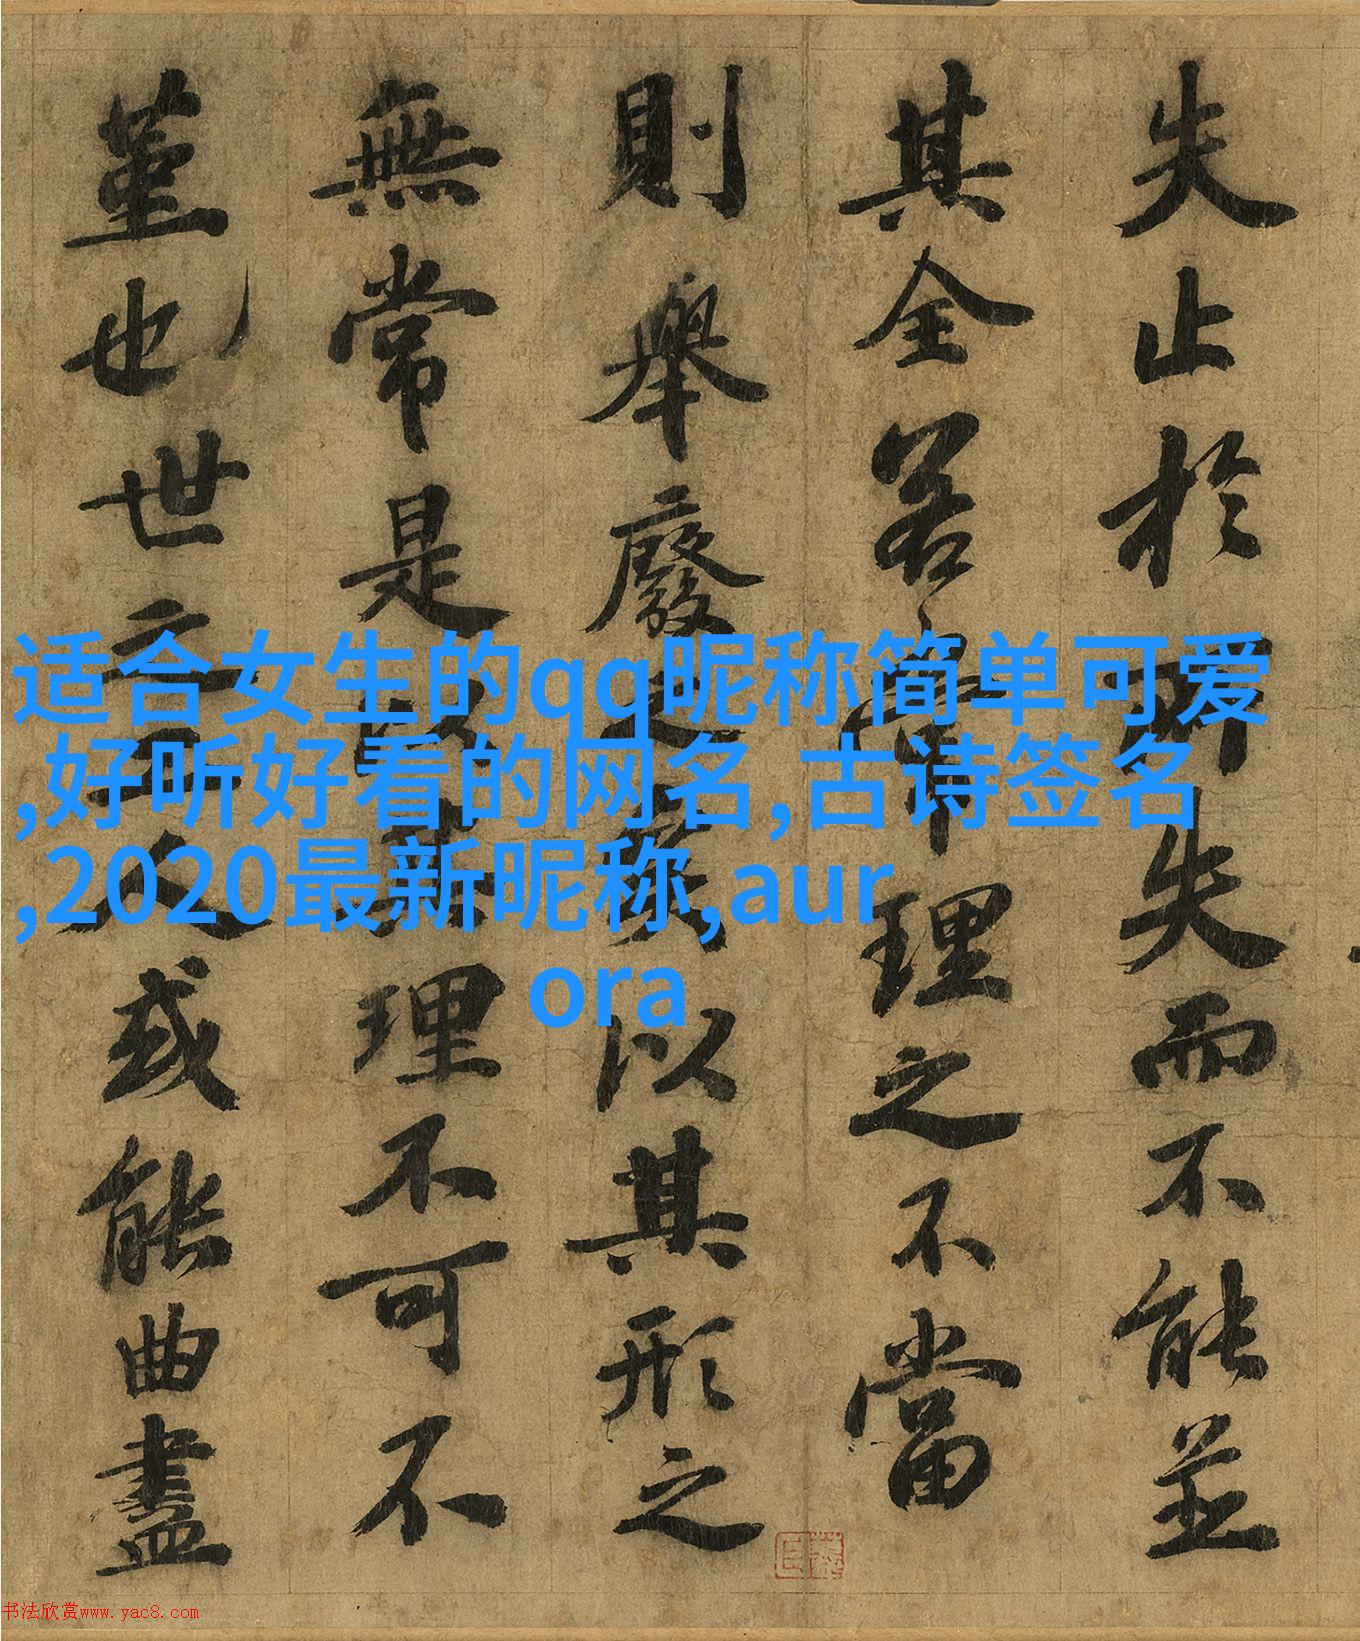 失止於所失而不能並
其全若常理之不當
則舉廢之矣以其形之
無常是以其理不可不
堇也世之工人或能曲盡
适合女生的qq昵称简单可爱
,好听好看的网名,古诗签名
,2020最新昵称,aur
ora
书法欣赏www.yac8.com